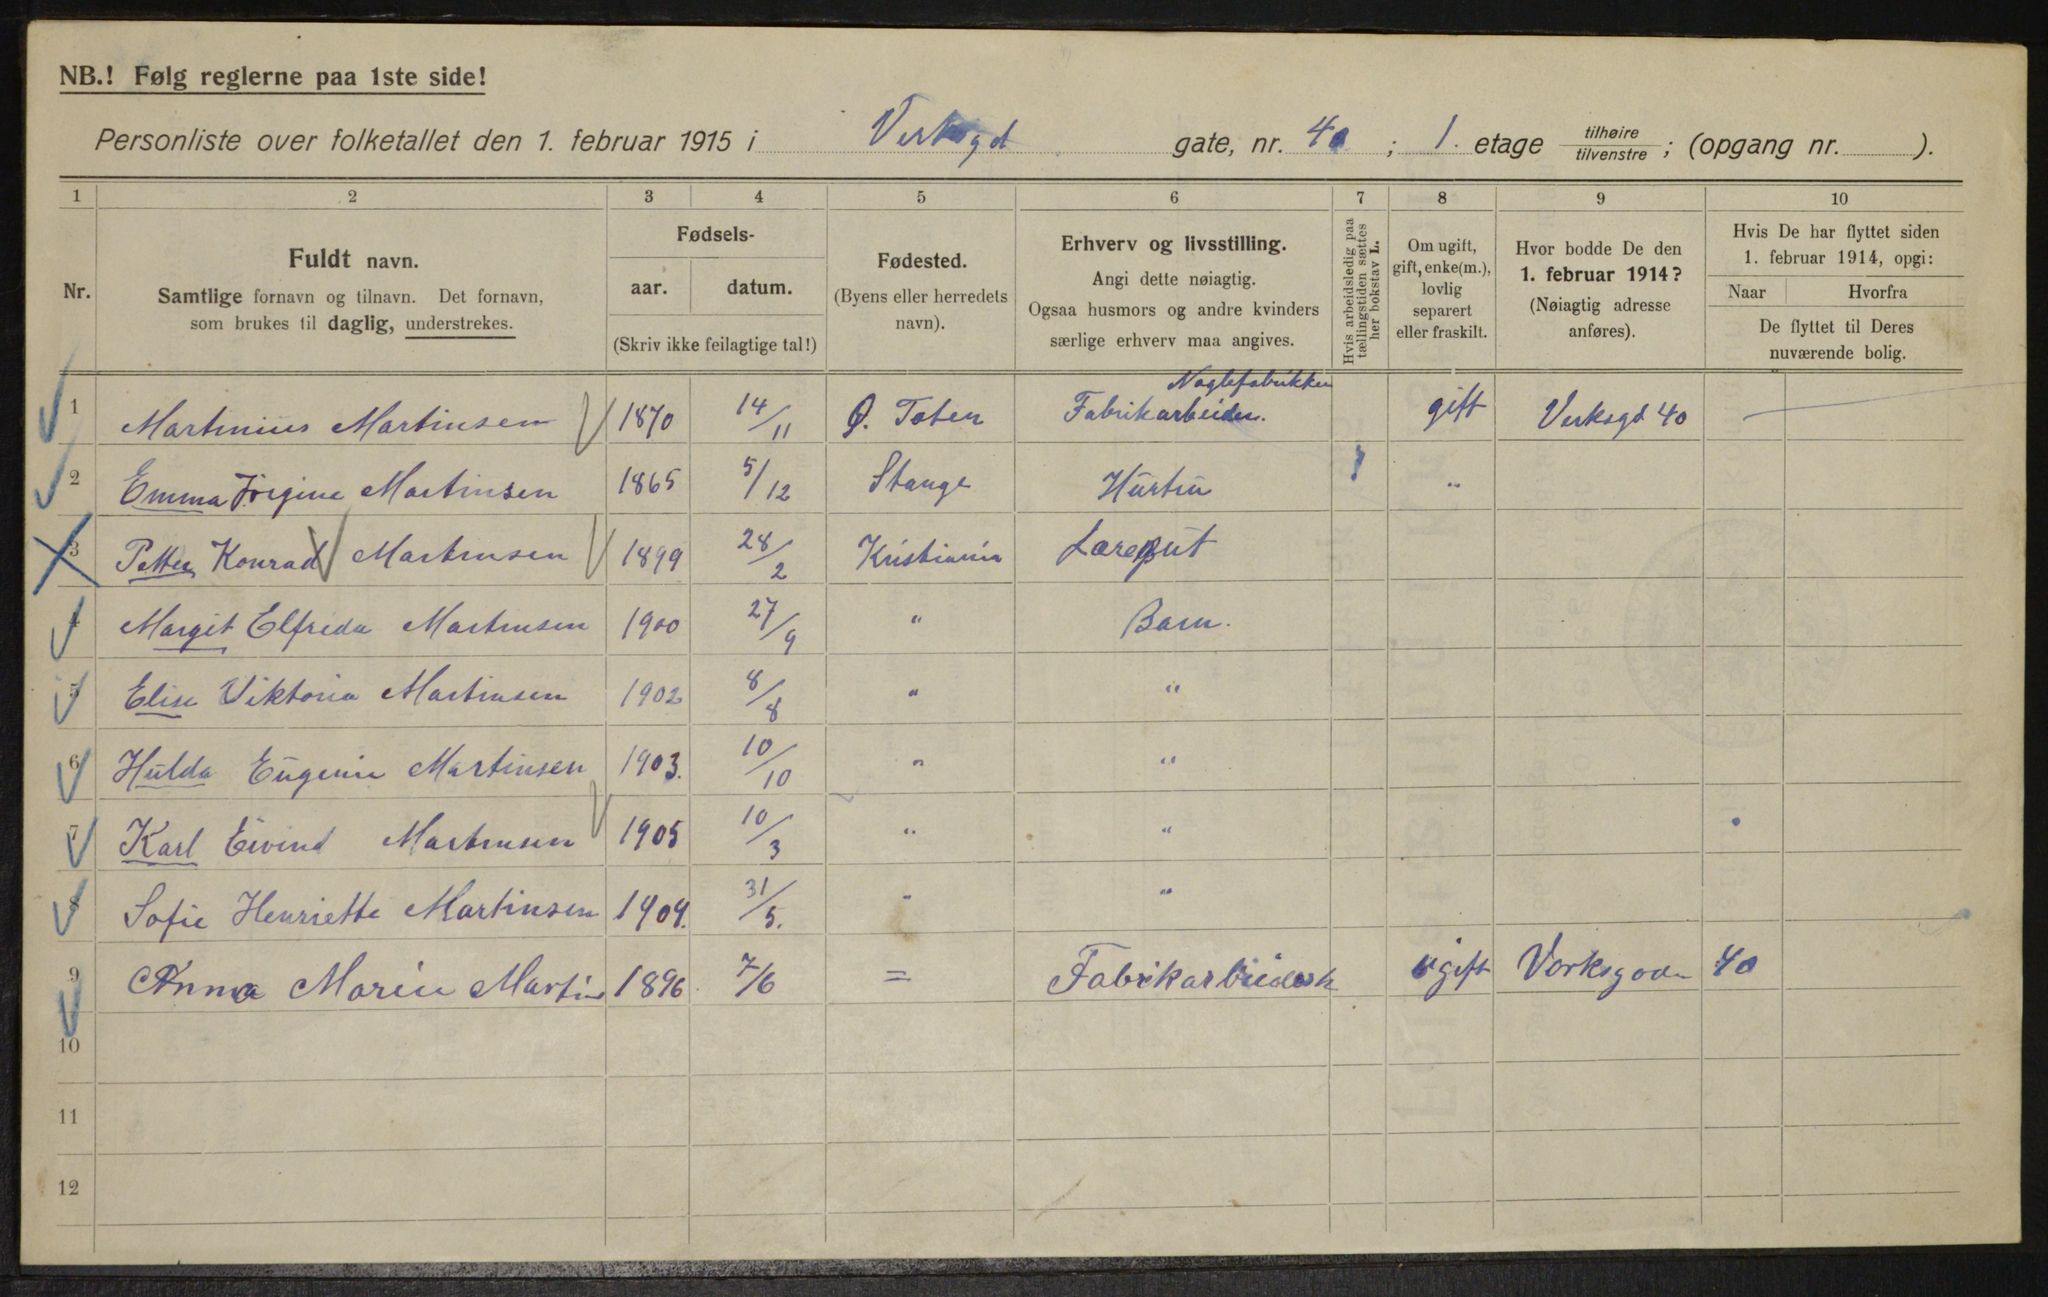 NB.! Følg reglerne paa 1ste side!
Personliste over folketallet den 1. februar 1915 i Verksgd gate, nr. 40 ; 1. etage tilhøire / tilvenstre ; (opgang nr. ).
1 2 3 4 5 6 7 8 9 10
Nr.
Fuldt navn.
Samtlige fornavn og tilnavn. Det fornavn,
som brukes til daglig, understrekes.
Fødsels-
aar. datum.
(Skriv ikke feilagtige tal!)
Fødested.
(Byens eller herredets
navn).
Erhverv og livsstilling.
Angi dette nøiagtig.
Ogsaa husmors og andre kvinders
særlige erhverv maa angives.
Hvis arbeidsledig paa
tællingstiden sættes
her bokstav L.
Om ugift,
gift, enke(m.),
lovlig
separert
eller fraskilt.
Hvor bodde De den
1. februar 1914?
(Nøiagtig adresse
anføres).
Hvis De har flyttet siden
1. februar 1914, opgi:
Naar Hvorfra
De flyttet til Deres
nuværende bolig.
Naglefabrikken
1 Martinius Martinsen 1870 14/11 Ø. Toten Fabrikarbeider. gift Verksgd 40 —
2 Emma Jörgine Martinsen 1865 5/12 Stange Hustru "
3 Petter Konrad Martinsen 1899 28/2 Kristiania Læregut
4 Margit Elfrida Martinsen 1900 27/9 " Barn.
5 Elise Viktoria Martinsen 1902 8/8 " "
6 Hulda Eugenie Martinsen 1903. 10/10 " "
7 Karl Eivind Martinsen 1905 10/3 " "
8 Sofie Henriette Martinsen 1909. 31/5. " "
9 Anna Marie Martins 1896 7/6 = Fabrikarbeidersk ugift Verksgaden 40
10
11
12